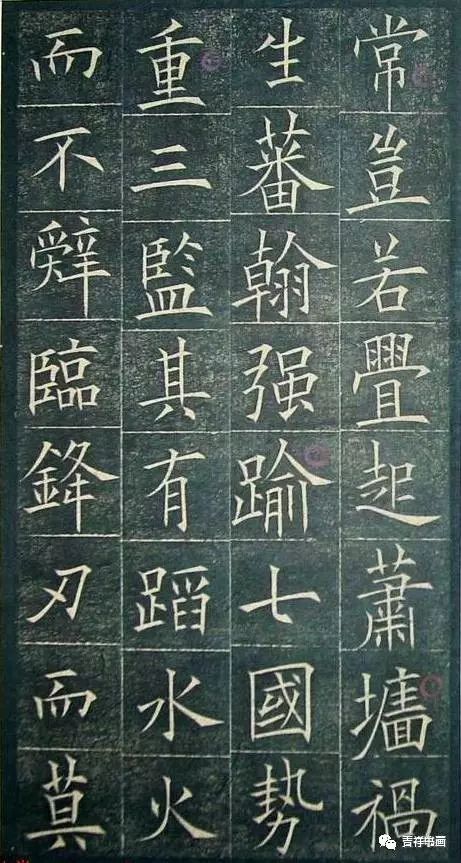 常豈若舋起蕭墻禍
生蕃翰强踰七國勢
重三監其有蹈水火
而不辤臨鋒刃而莫
吉祥书画